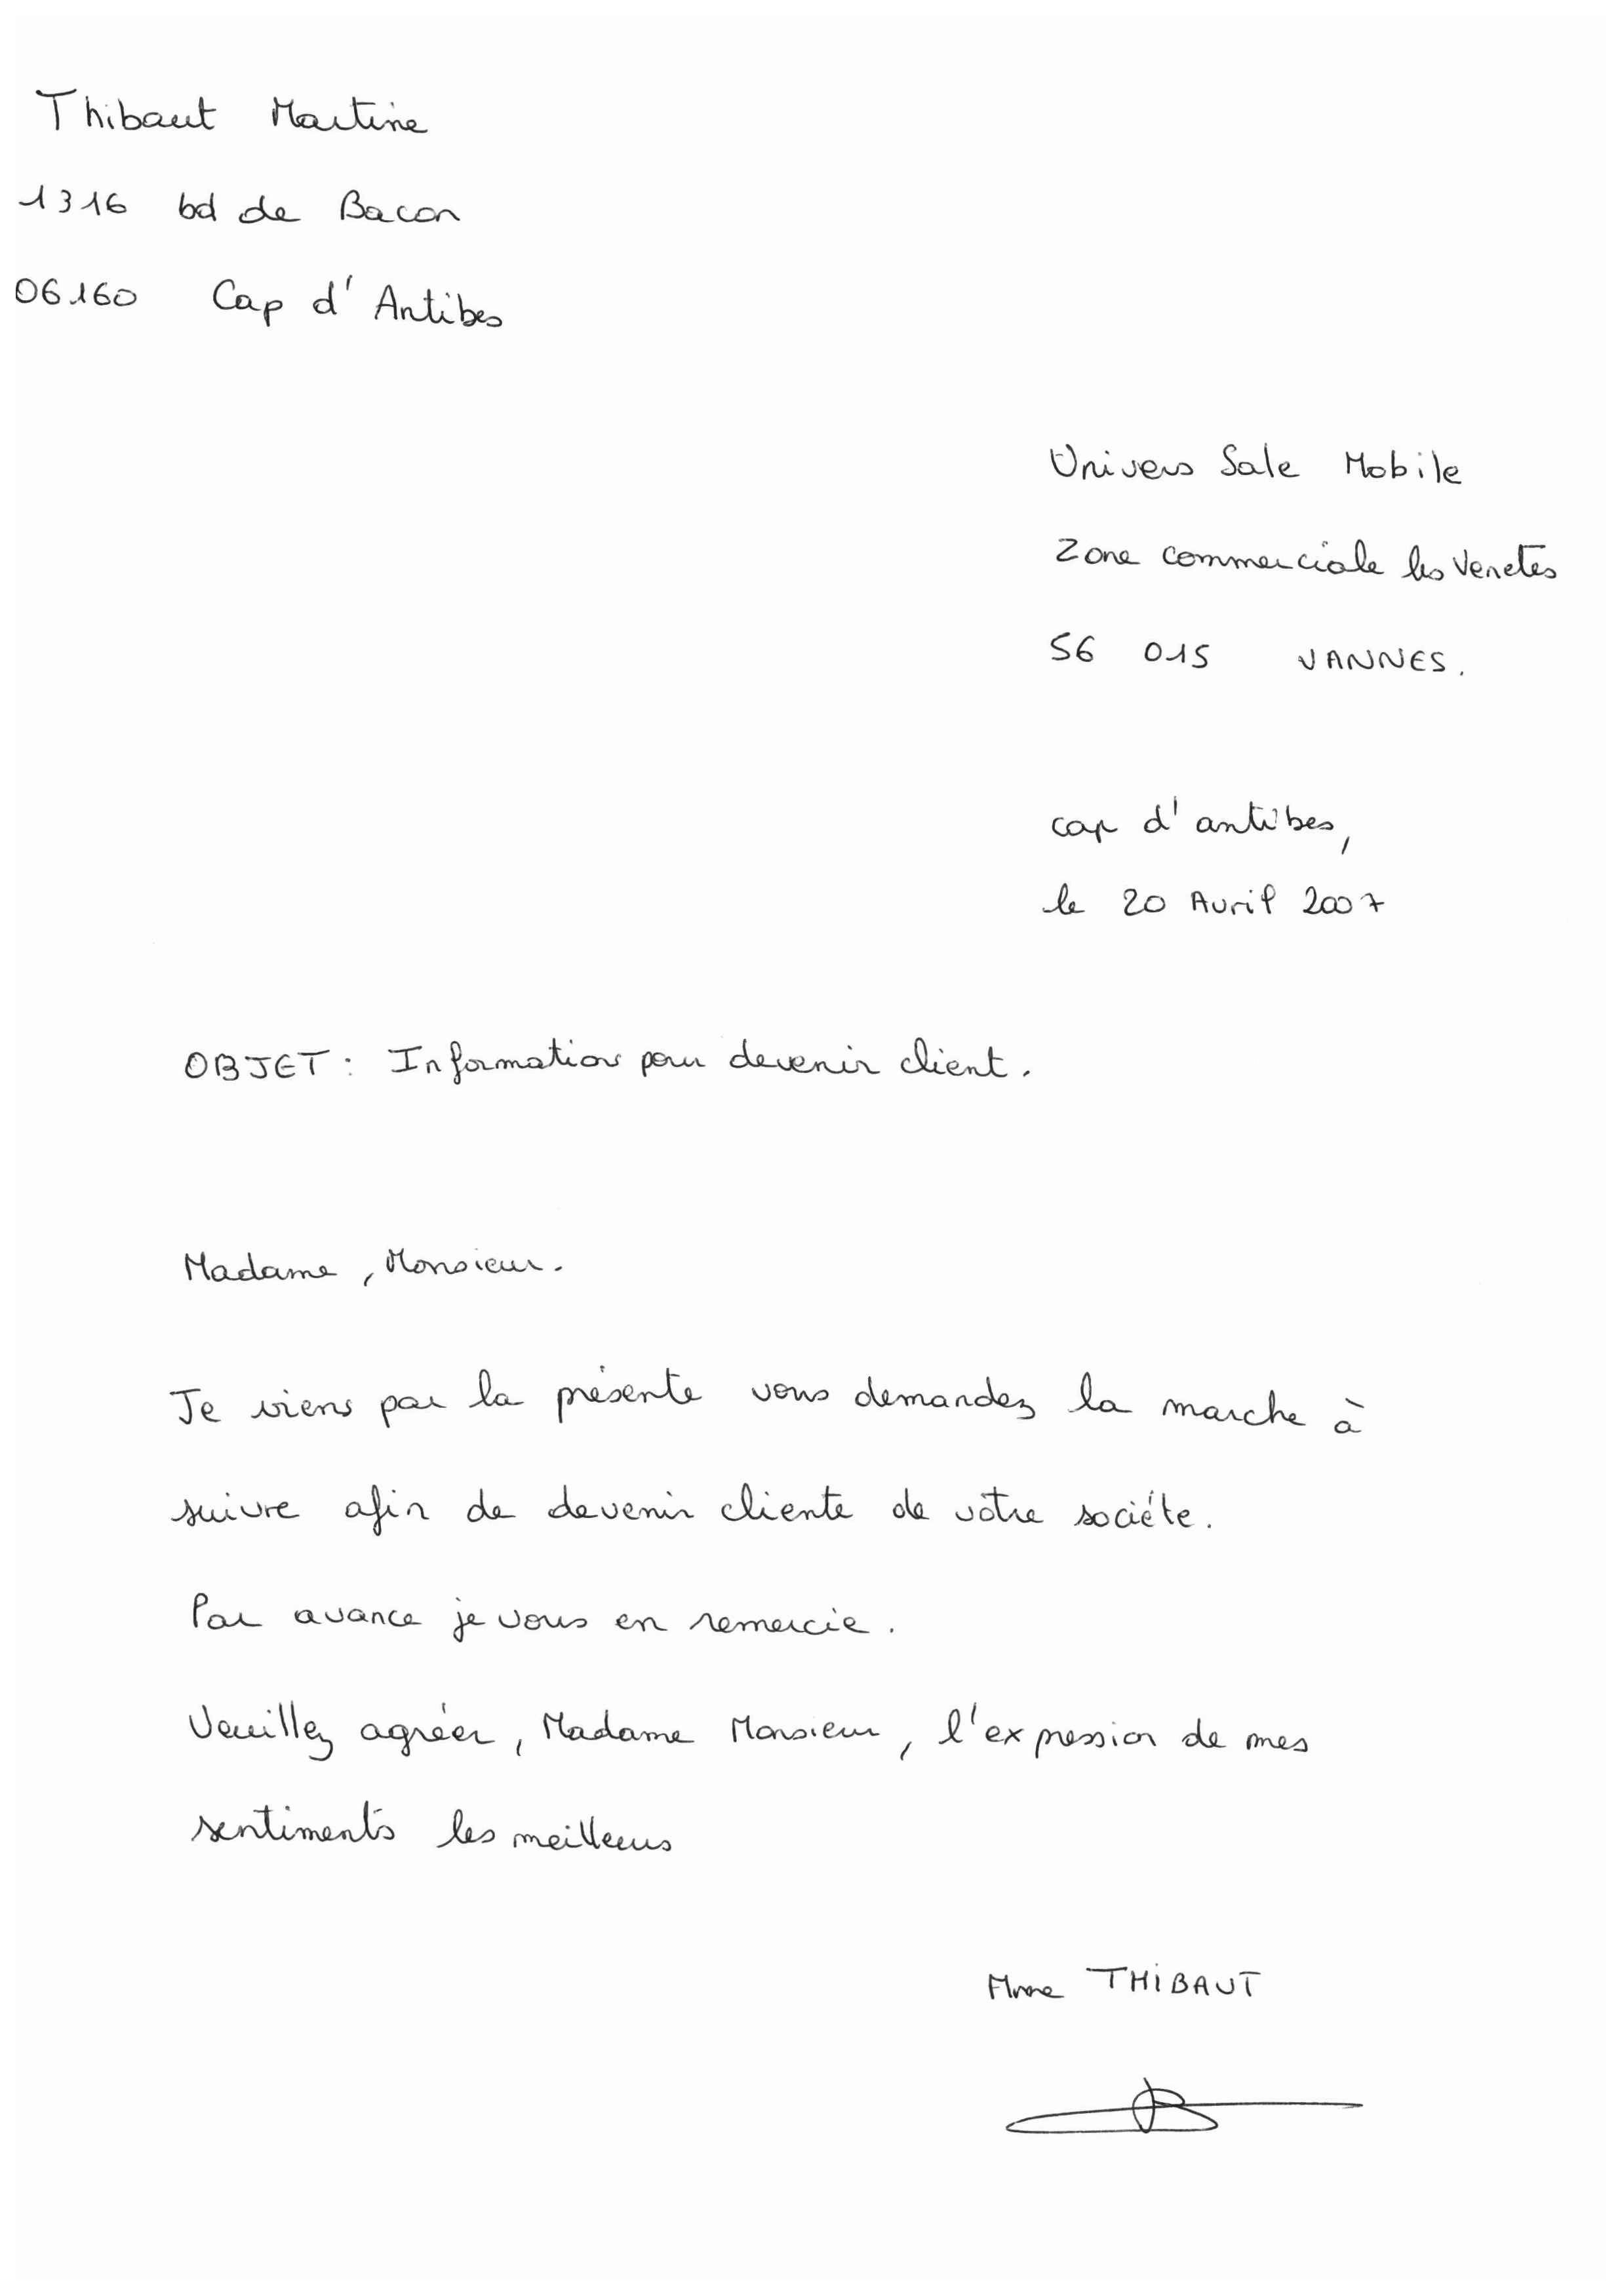 Thibaut Martine
1316 bd de Bacon
06160 Cap d'Antibes
Univers Sale Mobile
Zone commerciale les Venetes
56 015 VANNES.
cap d'antibes,
le 20 Avril 2007
OBJET : Information pour devenir client.
Madame, Monsieur.
Je viens par la présente vous demandez la marche à
suivre afin de devenir cliente de vôtre sociéte.
Par avance je vous en remercie.
Veuillez agréer, Madame Monsieur, l'expression de mes
sentiments les meilleurs
Mme THIBAUT